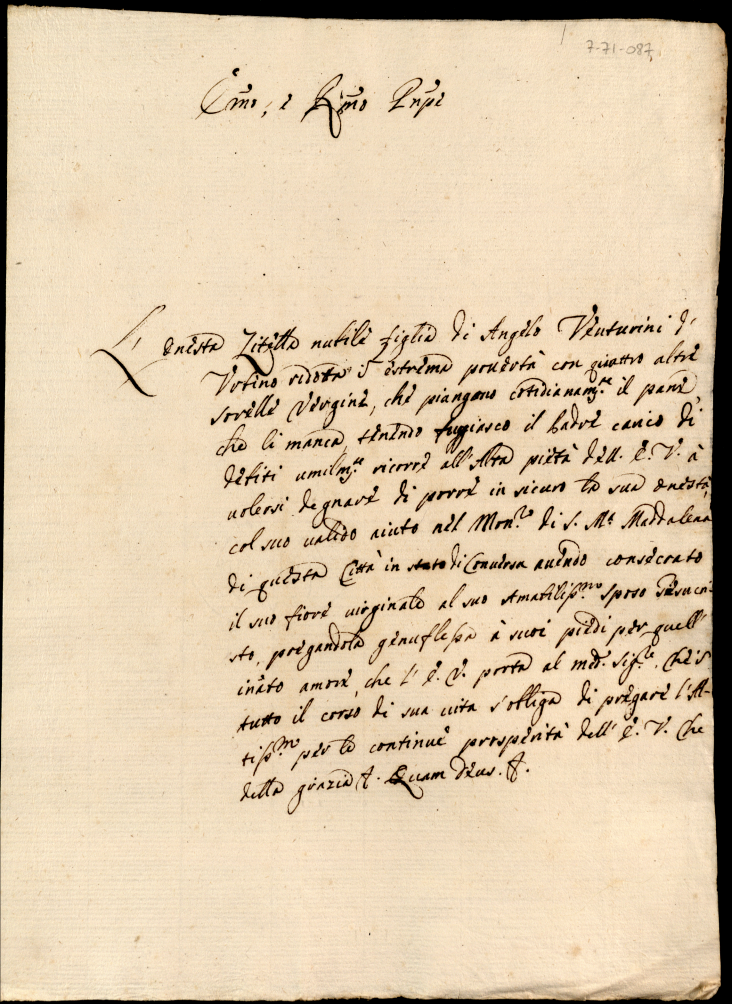 7-71-087
Emo, e Rmo Pnpe
L' onesta Zitella nubile figlia di Angelo Venturini d'
Urbino ridotta ĩ estrema povertà con quattro altre
sorelle Vergine, che piangono cotidianamte il pane,
che li manca, tenendo fuggiasco il Padre carico di
debiti umilmte ricorre all'Alta pietà dell. E. V. à
volersi degnare di porre in sicuro la sua onestà,
col suo valido aiuto nel Monro di S. Ma Maddalena
di questa Città in stato di Conversa avendo consecrato
il suo fiore virginale al suo Amatilissmo Sposo Gesucri-
sto, pregandola genuflessa à suoi piedi per quell'
inato amore, che l' E. V. porta al med. Sigre, che ĩ
tutto il corso di sua vita s'obliga di pregare l'Al-
tissmo per le continue prosperità dell' E. V. Che
della grazia &. Quam Deus. &.